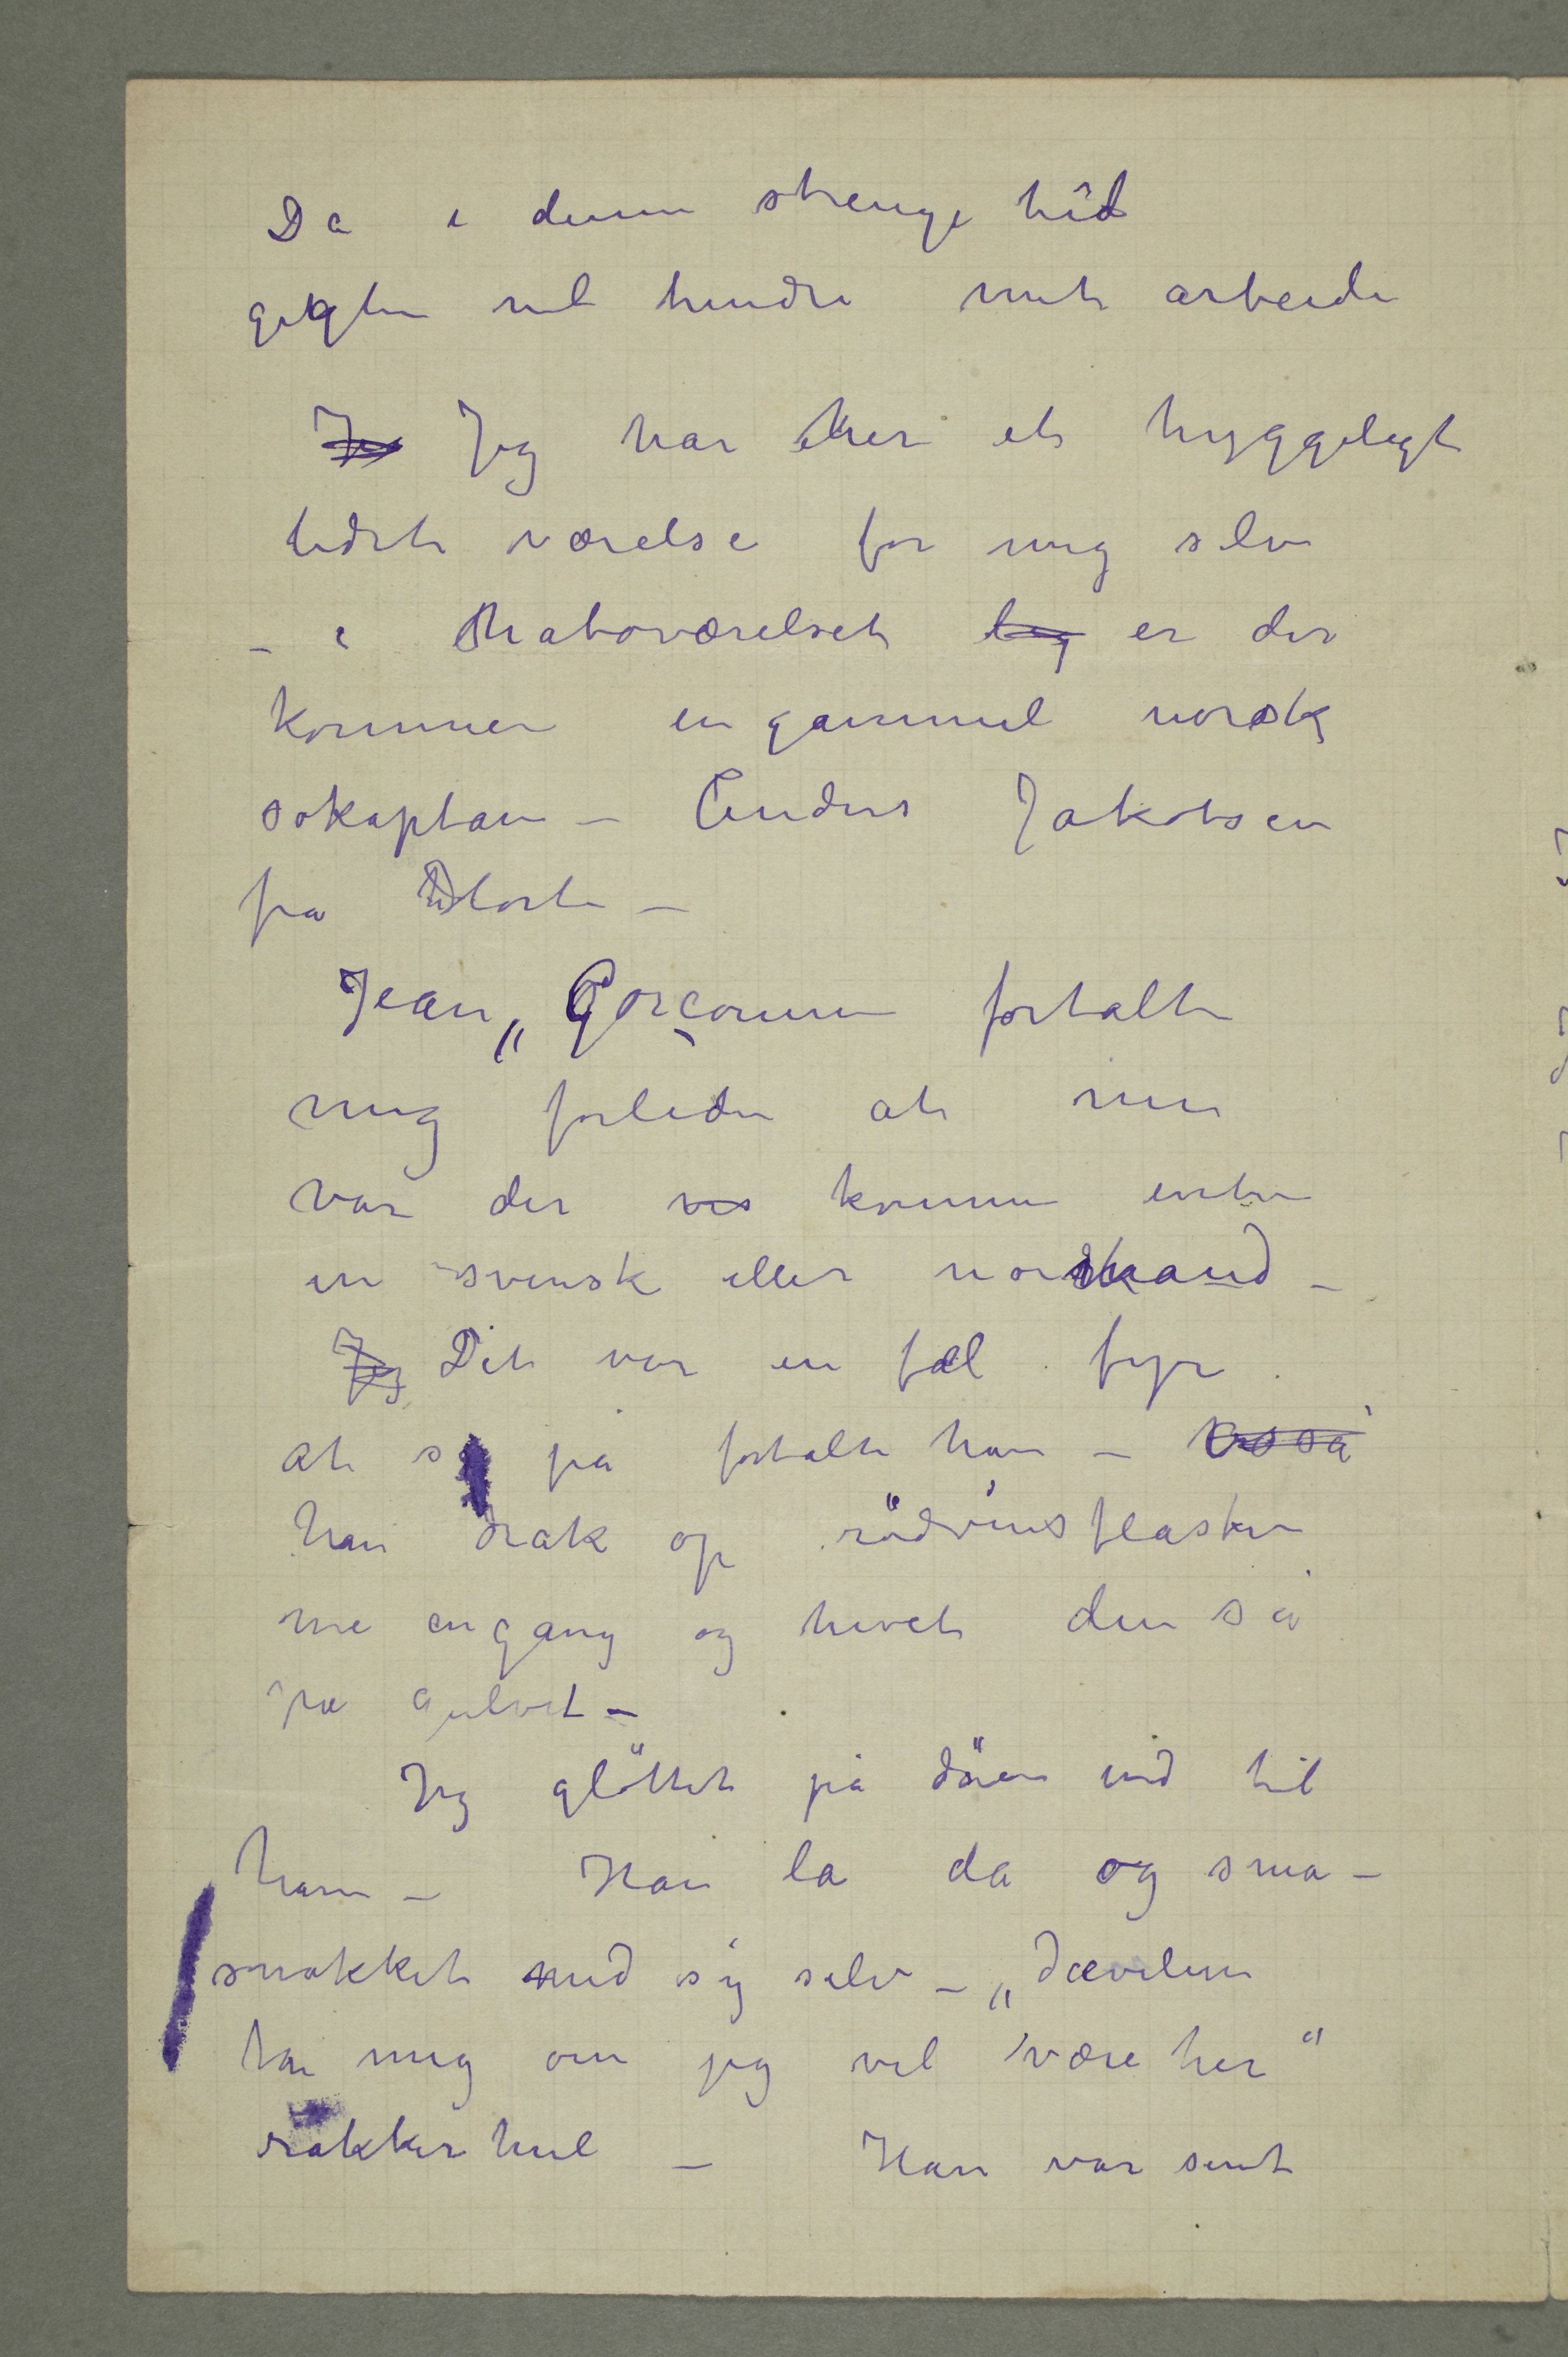 Da i denne strenge tid
gigten vil hindre mit arbeide
Jeg Jeg har her et hyggeligt
lidet værelse for mig selv
– i Naboværelset lig er der
kommen en gammel norsk
sokaptain – Anders Jakobsen
fra
Jean „Garçonnen fortalte
mig forleden at nu
var der vis kommen enten
en svensk eller norskmand –
Jeg Det var en fæl fyr
at se på fortalte han – også
han drak op rödvinsflasken
me engang og hevet den så
på gulvet –
Jeg glöttet på dören ind til
ham – Han la da og sma –
snakket med sig selv – „Dævelen
ta mig om jeg vil være her“
rakkerhul – Han var sint